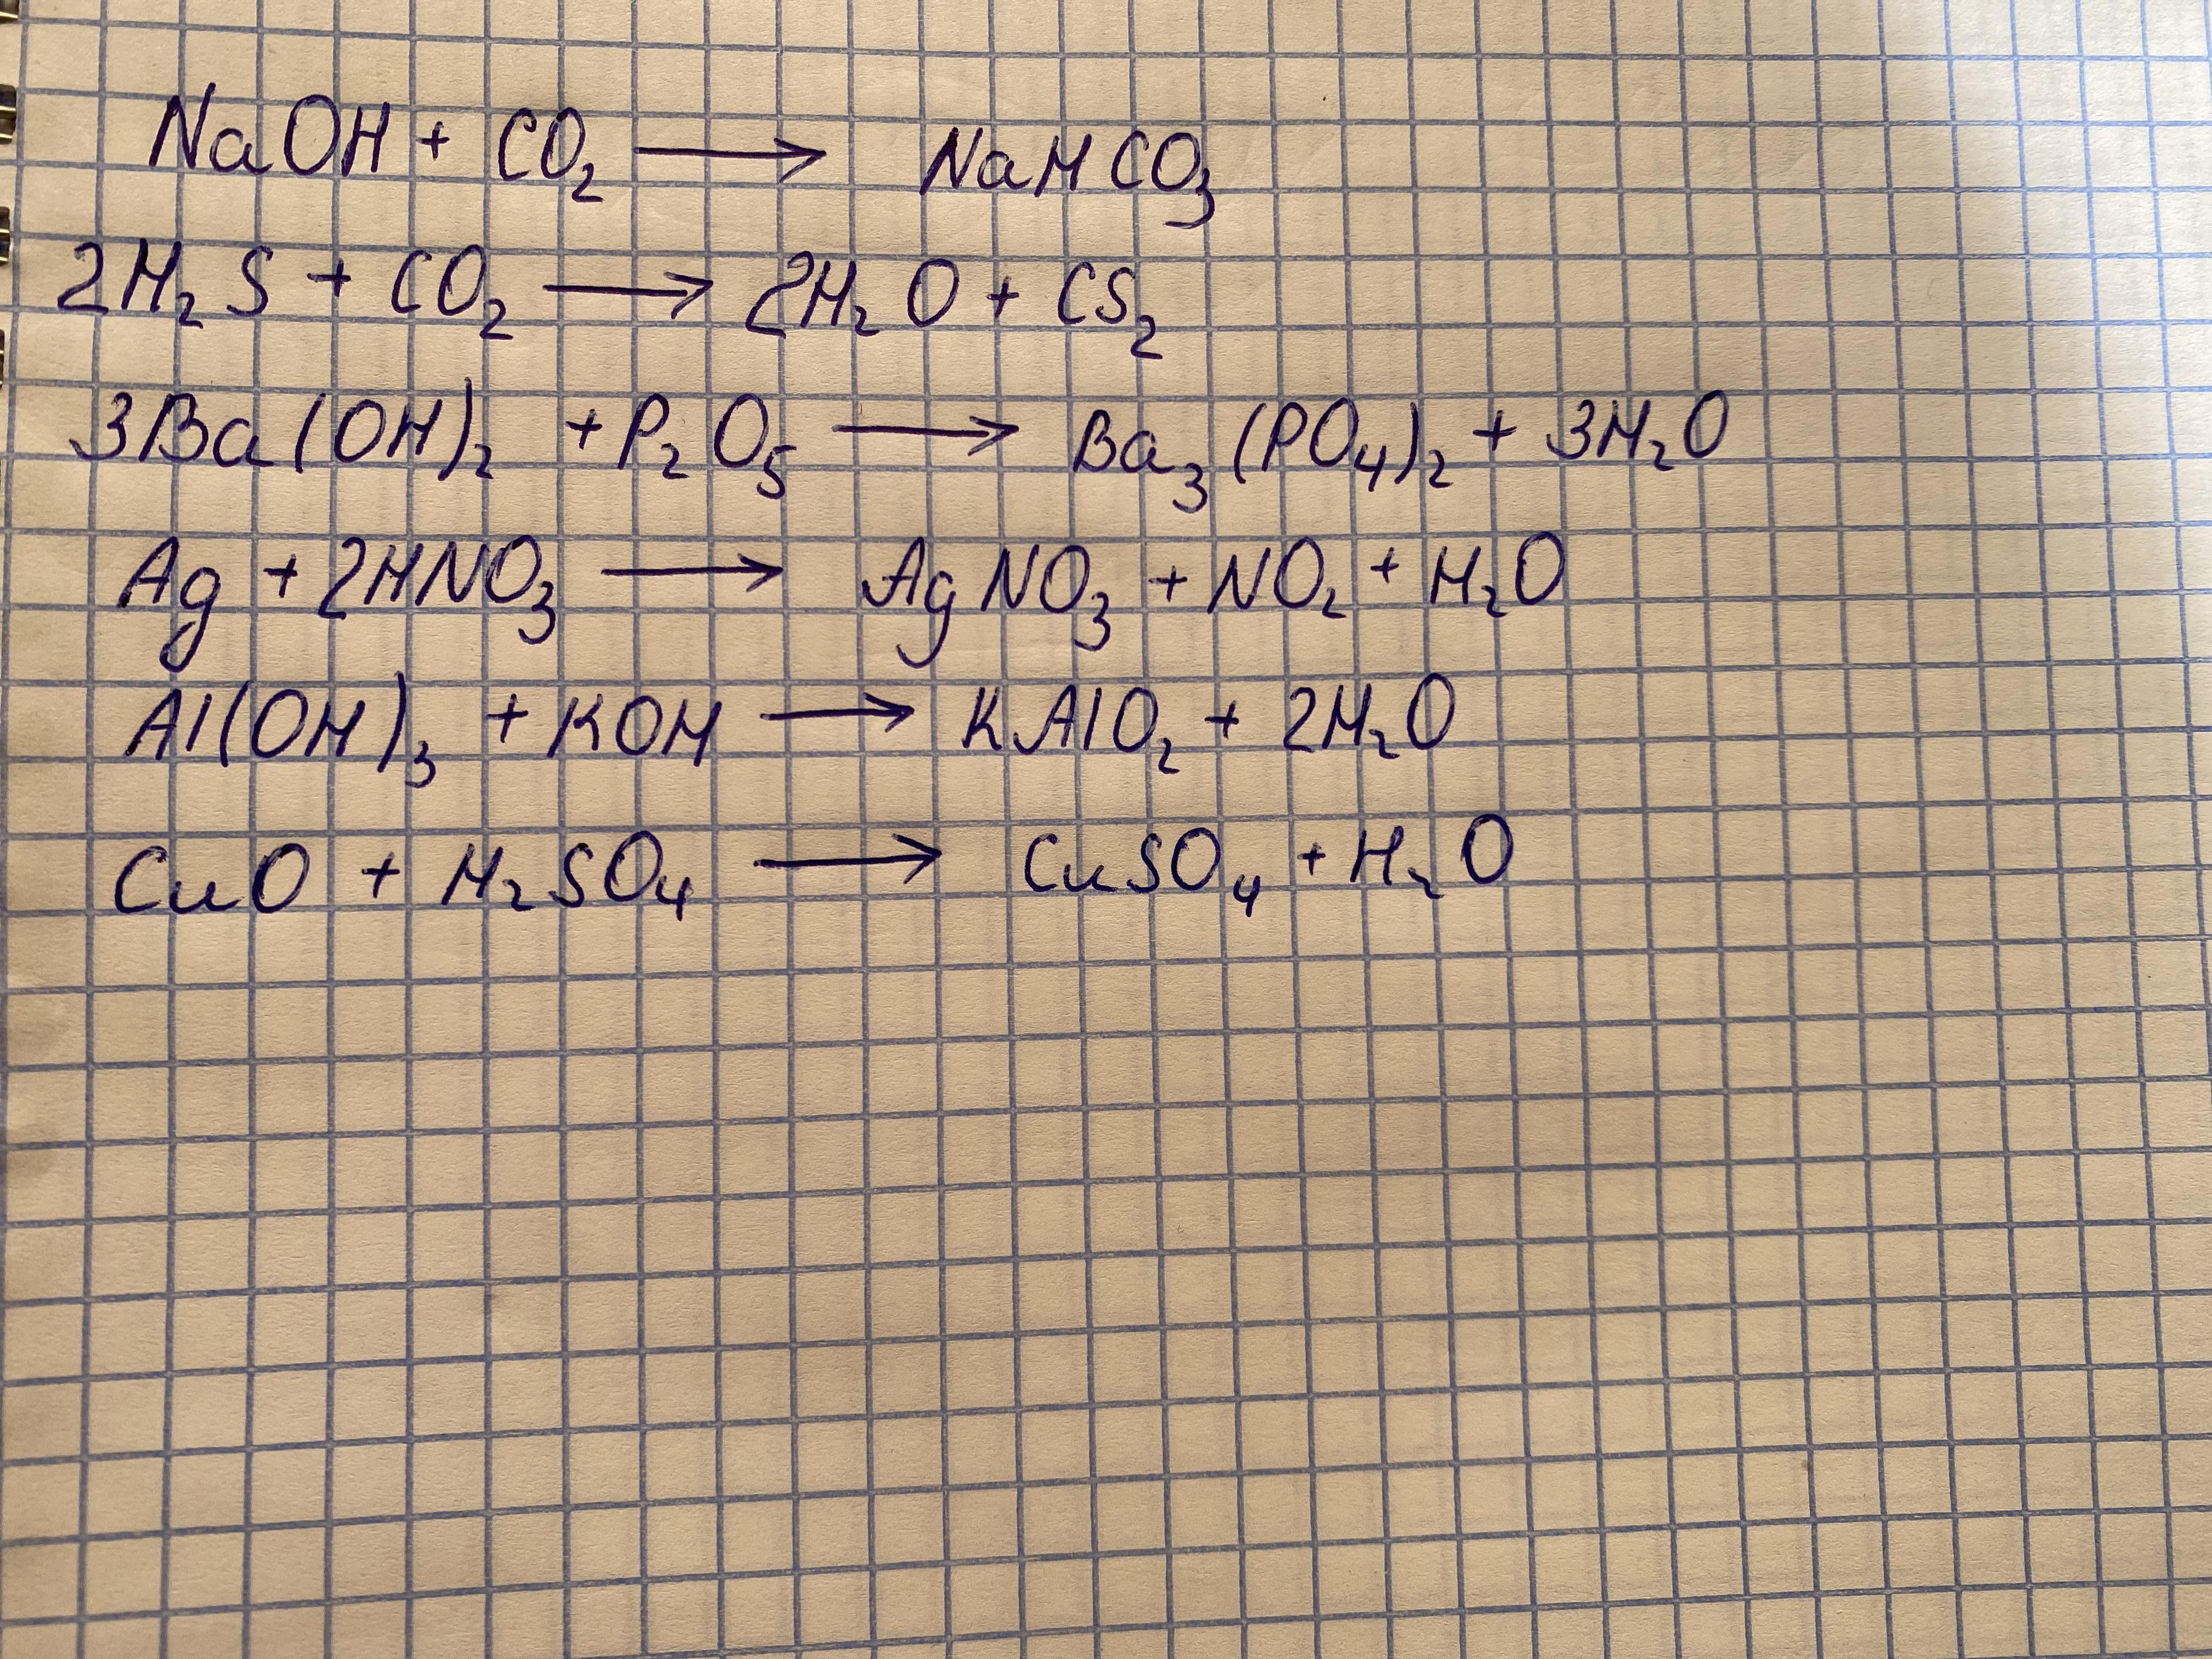 NaOH + CO₂ → NaHCO₃
2H₂S + CO₂ → 2H₂O + CS₂
3Ba(OH)₂ + P₂O₅ → Ba₃(PO₄)₂ + 3H₂O
Ag + 2HNO₃ → AgNO₃ + NO₂ + H₂O
Al(OH)₃ + KOH → KAlO₂ + 2H₂O
CuO + H₂SO₄ → CuSO₄ + H₂O